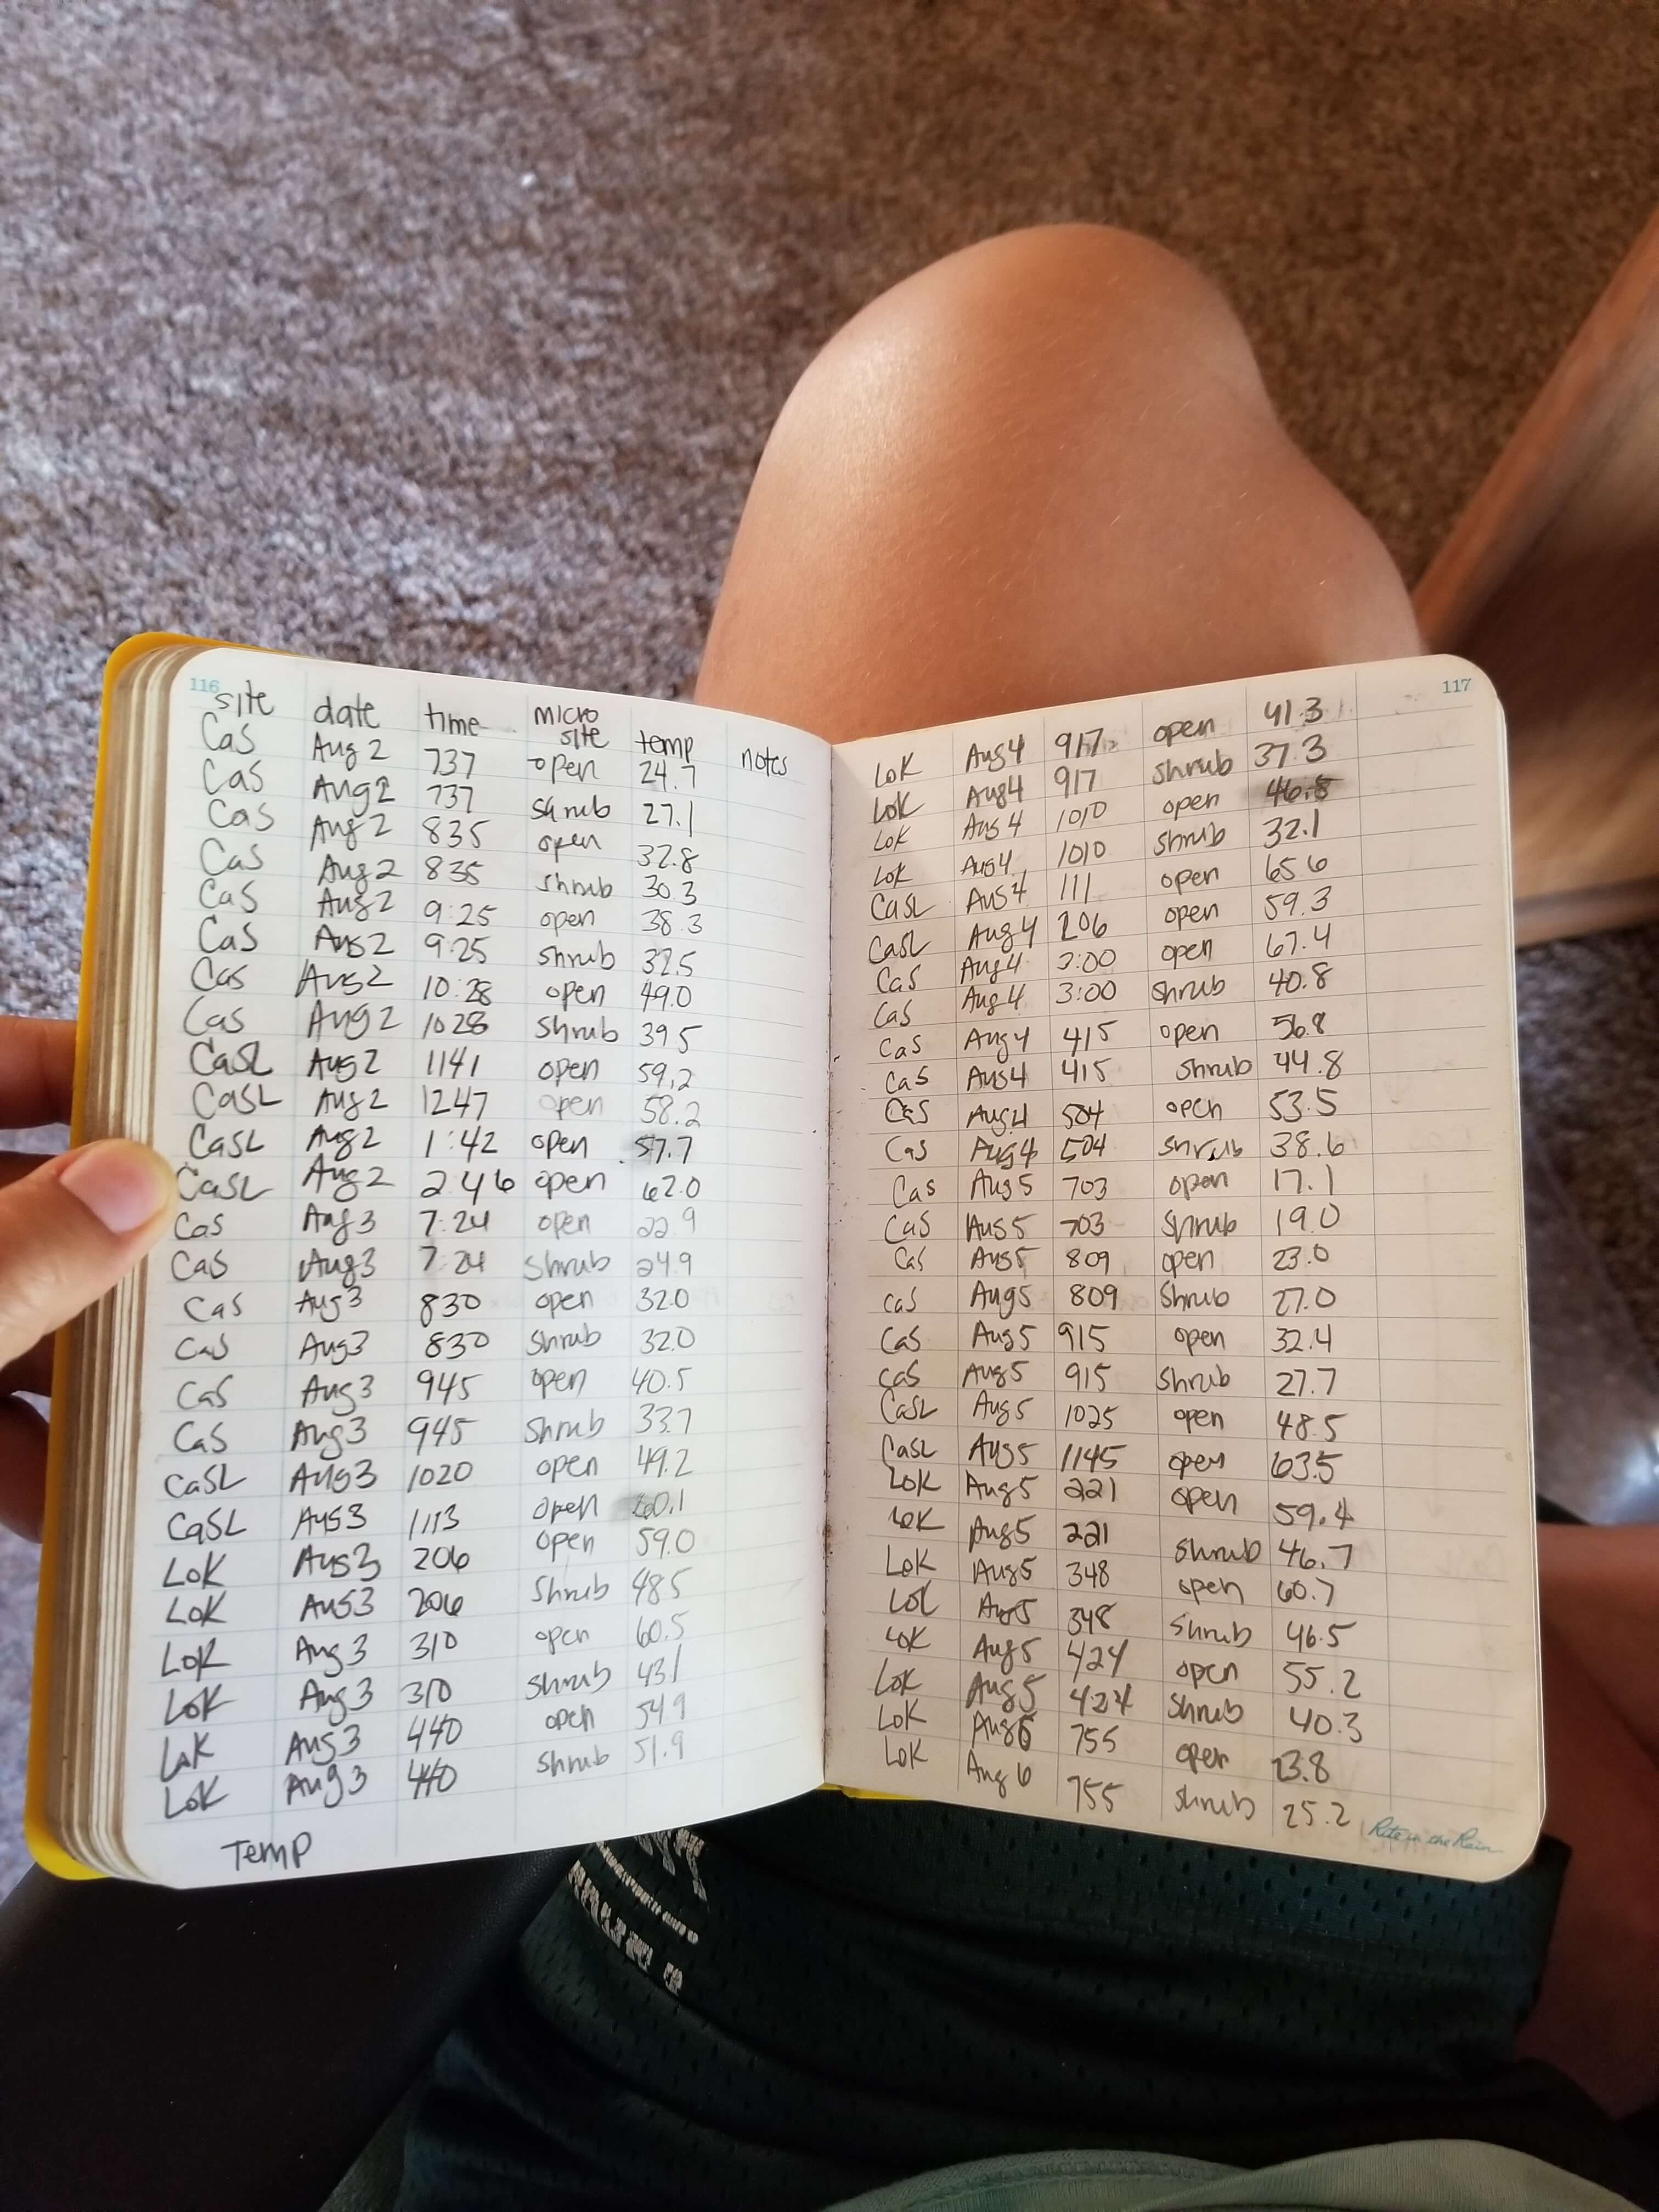 116
site date time micro site temp notes
Cas Aug 2 737 open 24.7
Cas Aug 2 737 shrub 27.1
Cas Aug 2 835 open 32.8
Cas Aug 2 835 shrub 30.3
Cas Aug 2 9:25 open 38.3
Cas Aug 2 9:25 shrub 32.5
Cas Aug 2 10:28 open 49.0
Cas Aug 2 1028 shrub 39.5
CasL Aug 2 1141 open 59.2
CasL Aug 2 1247 open 58.2
CasL Aug 2 1:42 open 57.7
CasL Aug 2 246 open 62.0
Cas Aug 3 7:24 open 22.9
Cas Aug 3 7:24 shrub 24.9
Cas Aug 3 830 open 32.0
Cas Aug 3 830 shrub 32.0
Cas Aug 3 945 open 40.5
Cas Aug 3 945 shrub 33.7
CasL Aug 3 1020 open 49.2
CaSL Aug 3 1113 open 60.1
LoK Aug 3 206 open 59.0
LoK Aug 3 206 shrub 48.5
LoK Aug 3 310 open 60.5
LoK Aug 3 310 shrub 43.1
LoK Aug 3 440 open 54.9
LoK Aug 3 440 shrub 51.9
Temp
117
LoK Aug 4 917 open 41.3
LoK Aug 4 917 shrub 37.3
LoK Aug 4 1010 open 46.8
LoK Aug 4 1010 shrub 32.1
CasL Aug 4 111 open 65.6
CasL Aug 4 206 open 59.3
Cas Aug 4 3:00 open 67.4
Cas Aug 4 3:00 shrub 40.8
Cas Aug 4 415 open 56.8
Cas Aug 4 415 shrub 44.8
Cas Aug 4 504 open 53.5
Cas Aug 4 504 shrub 38.6
Cas Aug 5 703 open 17.1
Cas Aug 5 703 shrub 19.0
Cas Aug 5 809 open 23.0
Cas Aug 5 809 shrub 27.0
Cas Aug 5 915 open 32.4
Cas Aug 5 915 shrub 27.7
CasL Aug 5 1025 open 48.5
CasL Aug 5 1145 open 63.5
LoK Aug 5 221 open 59.4
LoK Aug 5 221 shrub 46.7
LoK Aug 5 348 open 60.7
LoK Aug 5 348 shrub 46.5
LoK Aug 5 424 open 55.2
LoK Aug 5 424 shrub 40.3
LoK Aug 6 755 open 23.8
LoK Aug 6 755 shrub 25.2
Rite in the Rain